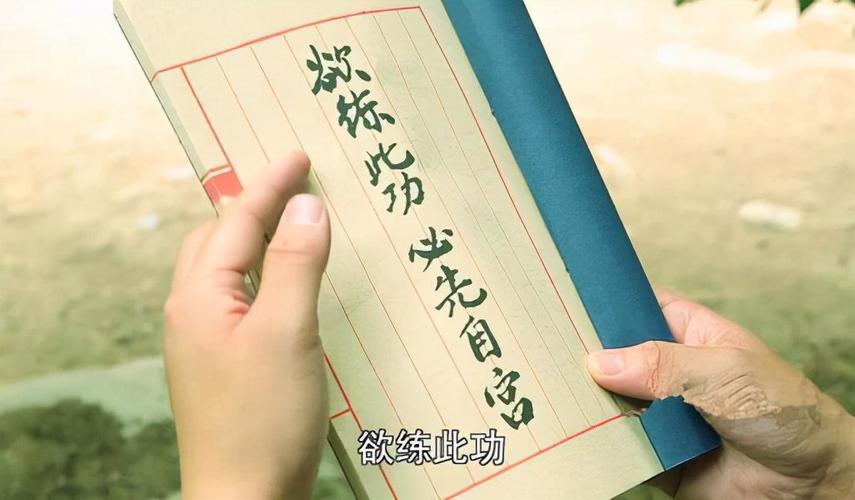 欲练此功 必先自宫
欲练此功